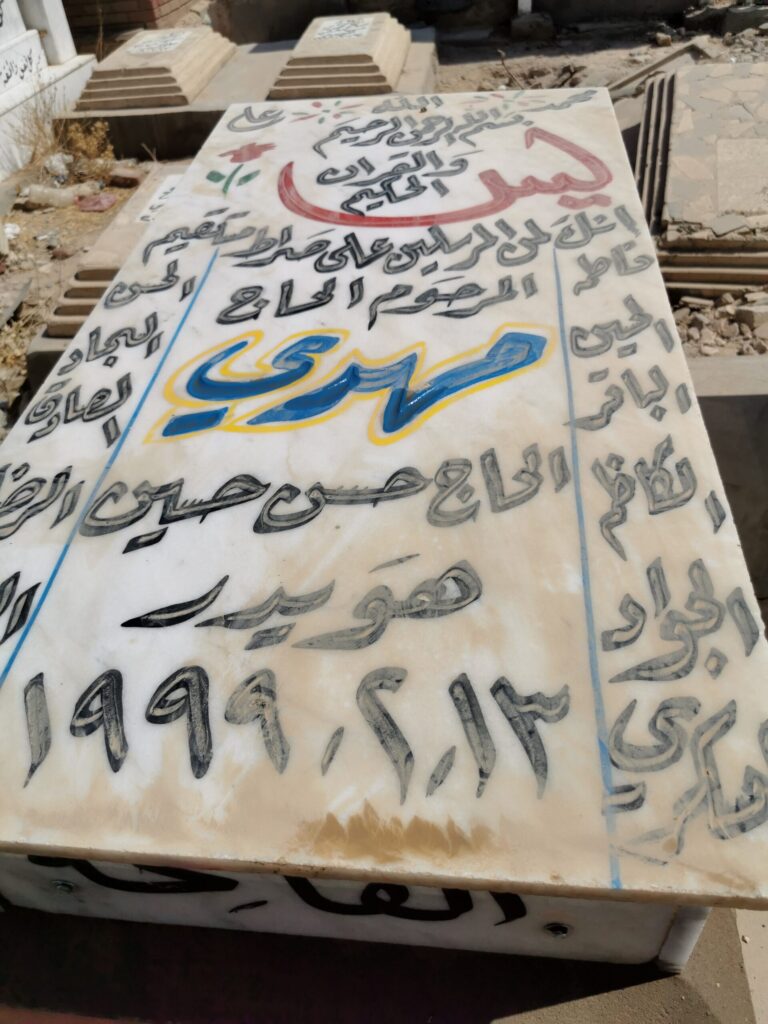 محمد الله علي
بسم الله الرحمن الرحيم
يس
والقران
الحكيم
انك لمن المرسلين على صراط مستقيم
فاطمه
الحسن
المرحوم الحاج
الحسين
السجاد
مهدي
الباقر
الصادق
الحاج حسن حسين
الكاظم
الرضا
هويدر
الجواد
١٣ . ٢ . ١٩٩٩
العسكري
الفاتحة